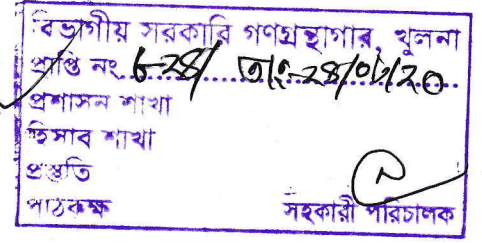 বিভাগীয় সরকারি গণগ্রন্থাগার, খুলনা
প্রাপ্তি নং ৮-২৪/ তাং-২৪/০৮/২০
প্রশাসন শাখা
হিসাব শাখা
প্রস্তুতি
পাঠকক্ষ সহকারী পরিচালক